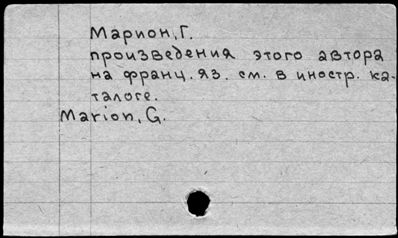 Марион, Г.
произведения этого автора
на франц. яз. см. в иностр. ка-
талоге.
Marion, G.